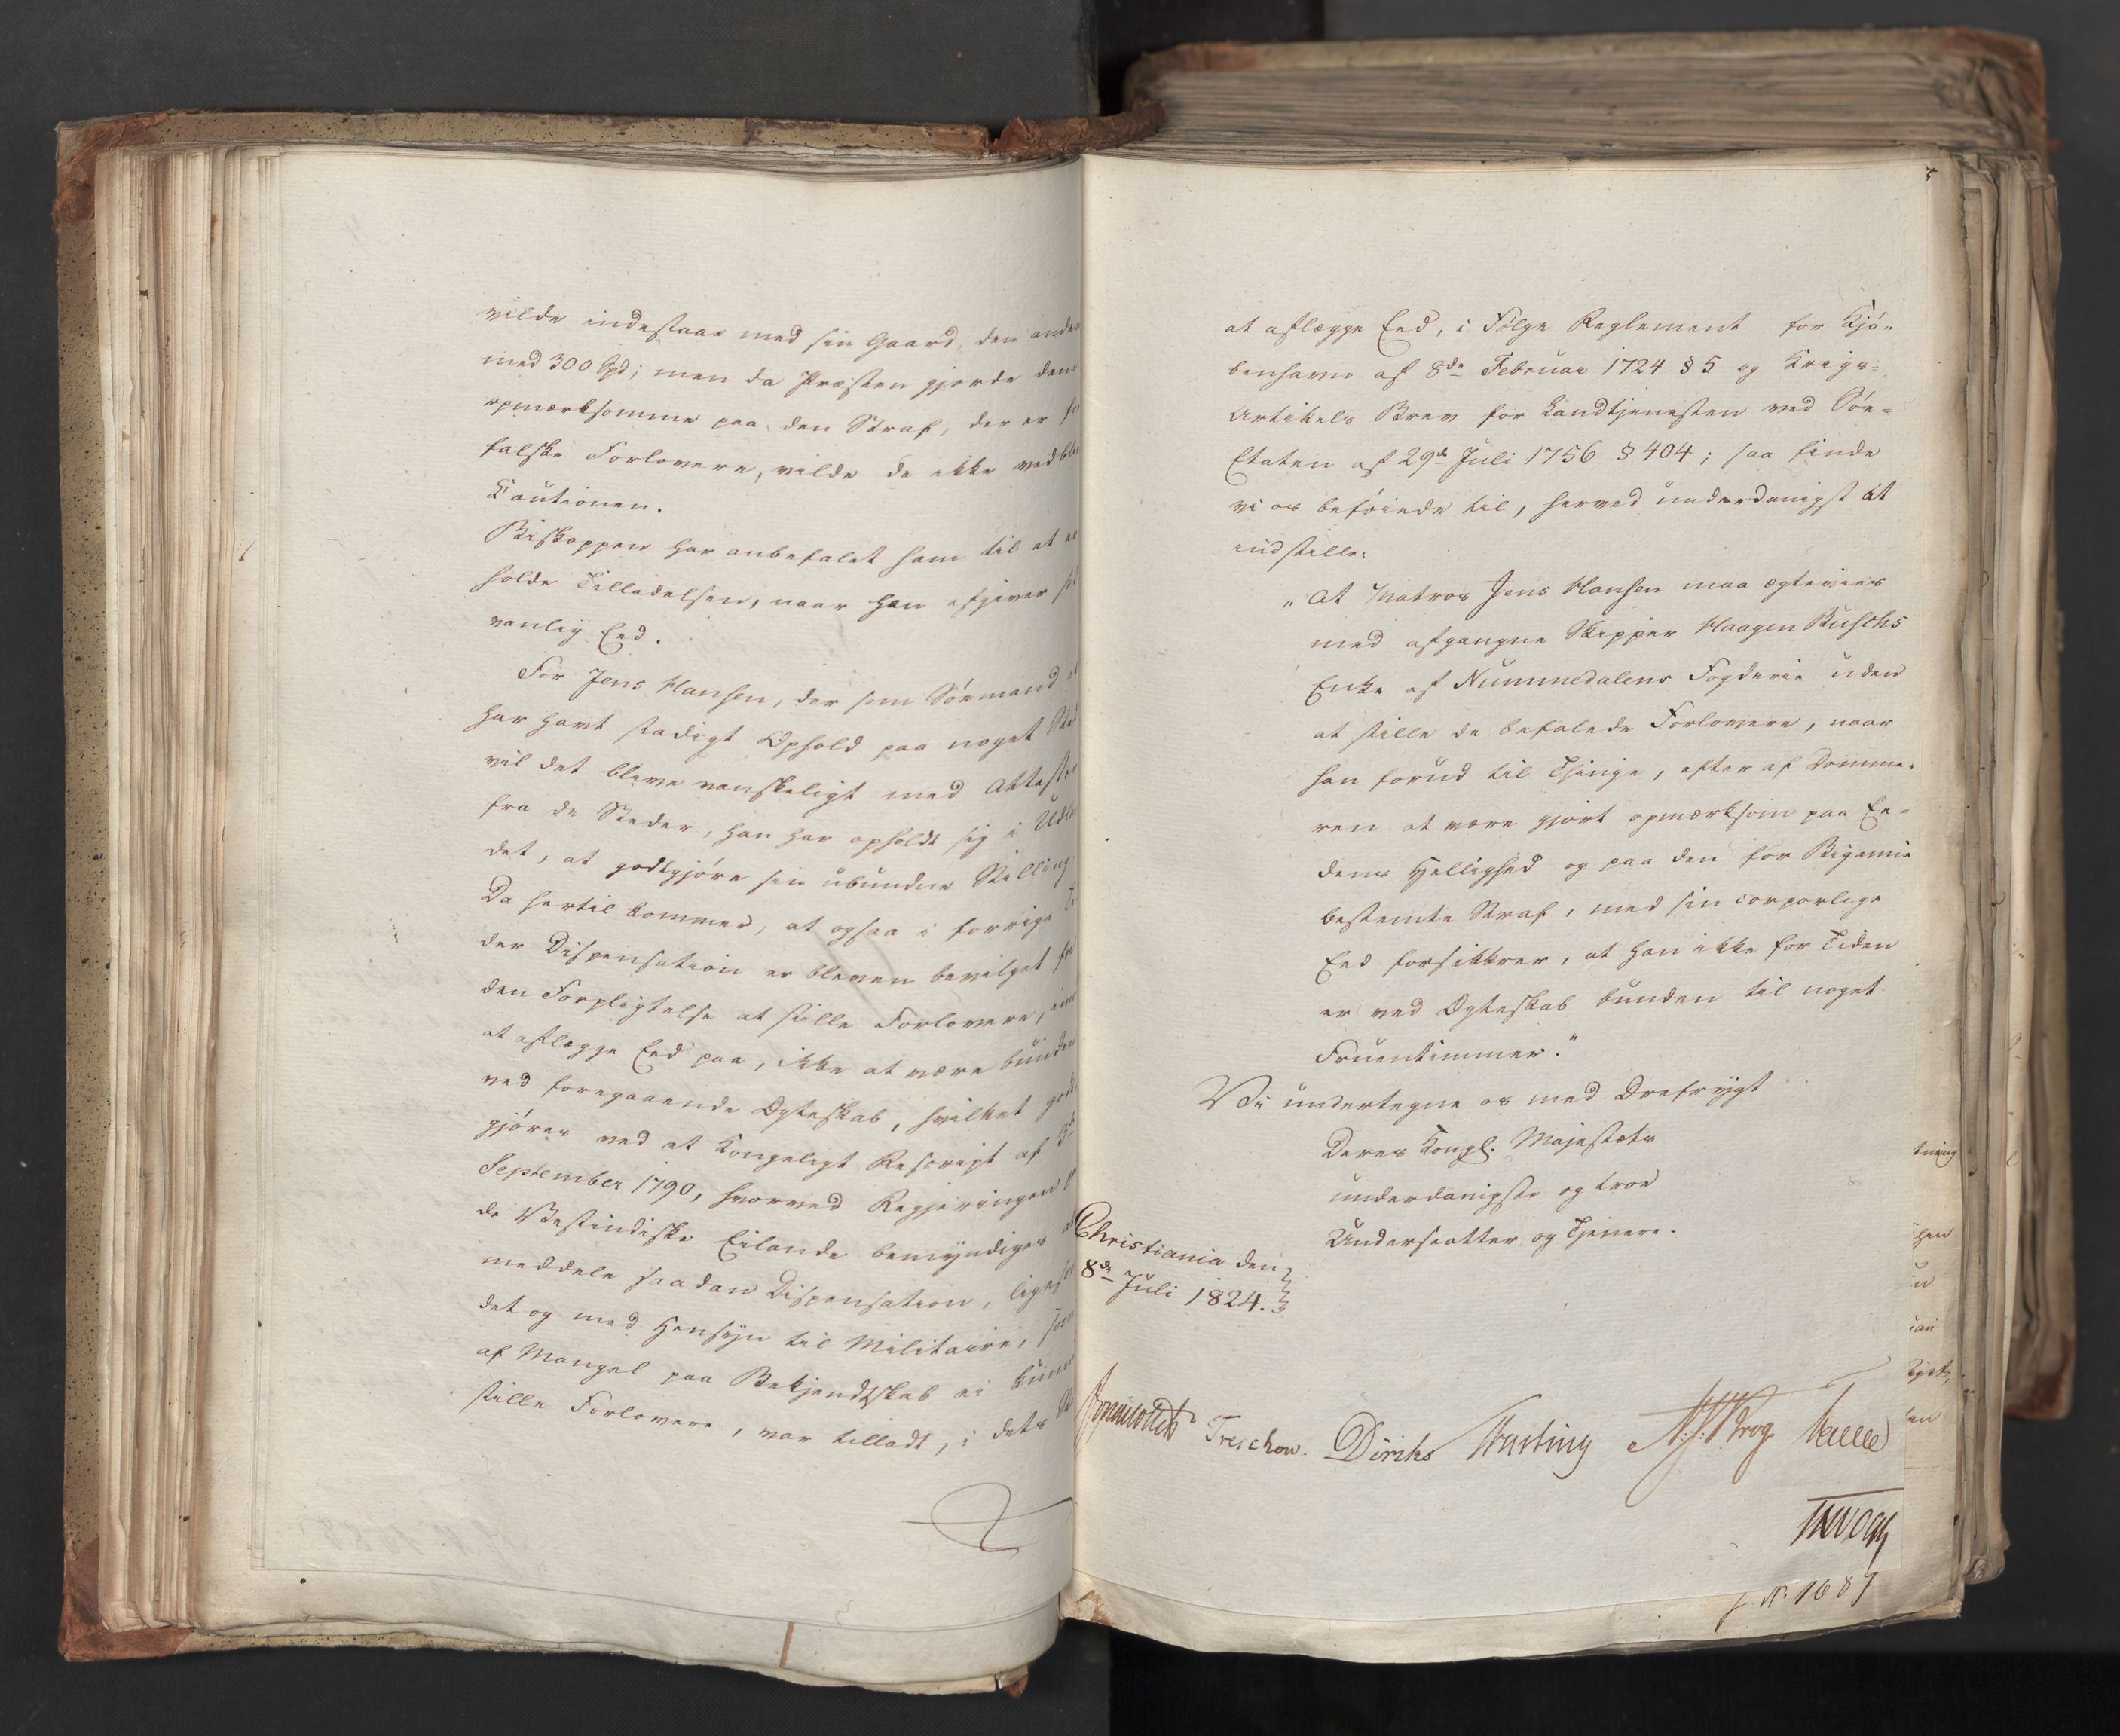 vilde indestaae med sin Gaard, den anden
med 300 Spd; men da Præsten gjorde dem
opmærksomme paa den Straf, der er for
falske Forlovere, vilde de ikke vedblive
Cautionen.
Biskoppen har anbefalet ham til at er
holde Tilladelsen, naar han afgiver
vanlig Eed.
For Jens Hansen, der som Söemand ei
har havt stadigt Ophold paa noget Sted
vil det blive vanskeligt med Attester
fra de Steder, han har opholdt sig i Udlan
det, at godtgjöre sin ubundne Stilling
Da hertil kommer, at ogsaa i forrige
der Dispensation er bleven bevilget fra
den Forpligtelse at stille Forlovere, imod
at aflægge Eed paa, ikke at være bunden
ved foregaaende Ægteskab, hvilket godt
gjöres ved et Kongeligt Rescript af 3de
September 1790, hvorved Regjeringen paa
de Vestindiske Eilande bemyndiges at
meddele saadan Dispensation, ligesom
det og med Hensyn til Militaire, som
af Mangel paa Bekjendtskab ei kunne
stille Forlovere, var tilladt, i dets
at aflægge Eed, i Fölge Reglement for Kjö-
benhavn af 8de Februar 1724 § 5 og Krigs-
Artikels Brev for Landtjenesten ved Söe-
Etaten af 29de Juli 1756 § 404; saa finde
vi os beföiede til, herved underdanigst at
indstille:
"At Matros Jens Hansen maa ægtevies
med afgangne Skipper Haagen Buschs
Enke af Nummedalens Fogderie uden
at stille de befalede Forlovere, naar
han forud til Thinge, efter af Domme-
ren at være gjort opmærksom paa Ee-
dens Hellighed og paa den for Bigamie
bestemte Straf, med sin corporlige
Eed forsikkrer, at han ikke for Tiden
er ved Ægteskab bunden til noget
Fruentimmer."
Vi undertegne os med Ærefrygt
Deres Kongl. Majestæts
underdanigste og troe
Undersaatter og Tjenere.
Christiania den
8de Juli 1824.
Sommerhielm Treschow. Diriks Fasting Krog
JN. 1687